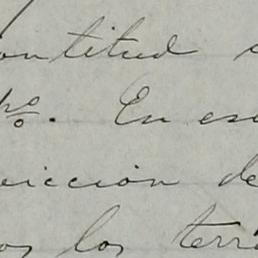 ontitud
po. En ese
eiccion de
os los terr